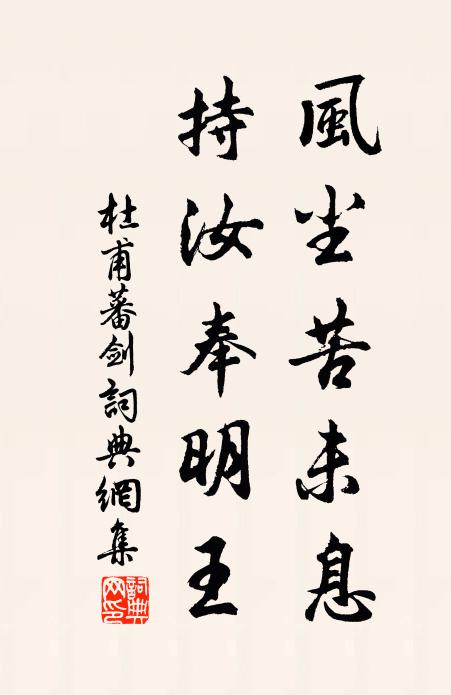 風尘苦未息
持汝奉明王
杜甫蕃剑詞典網集
詞典网印